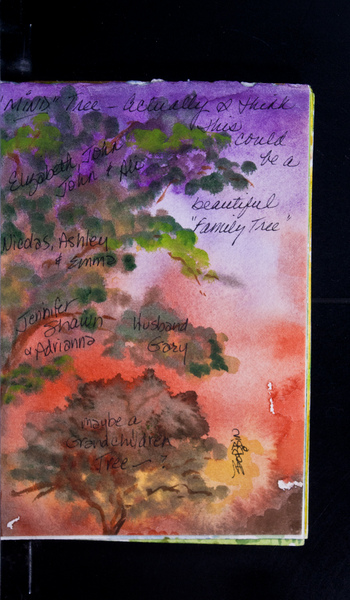 "MIND" Tree – Actually I think
This
could
be a
beautiful
"Family Tree"
Elizabeth John
John & Ali
Nicolas, Ashley
& Emma
Jennifer
Shawn
& Adrianna
Husband
Gary
maybe a
Grandchildren
Tree —?